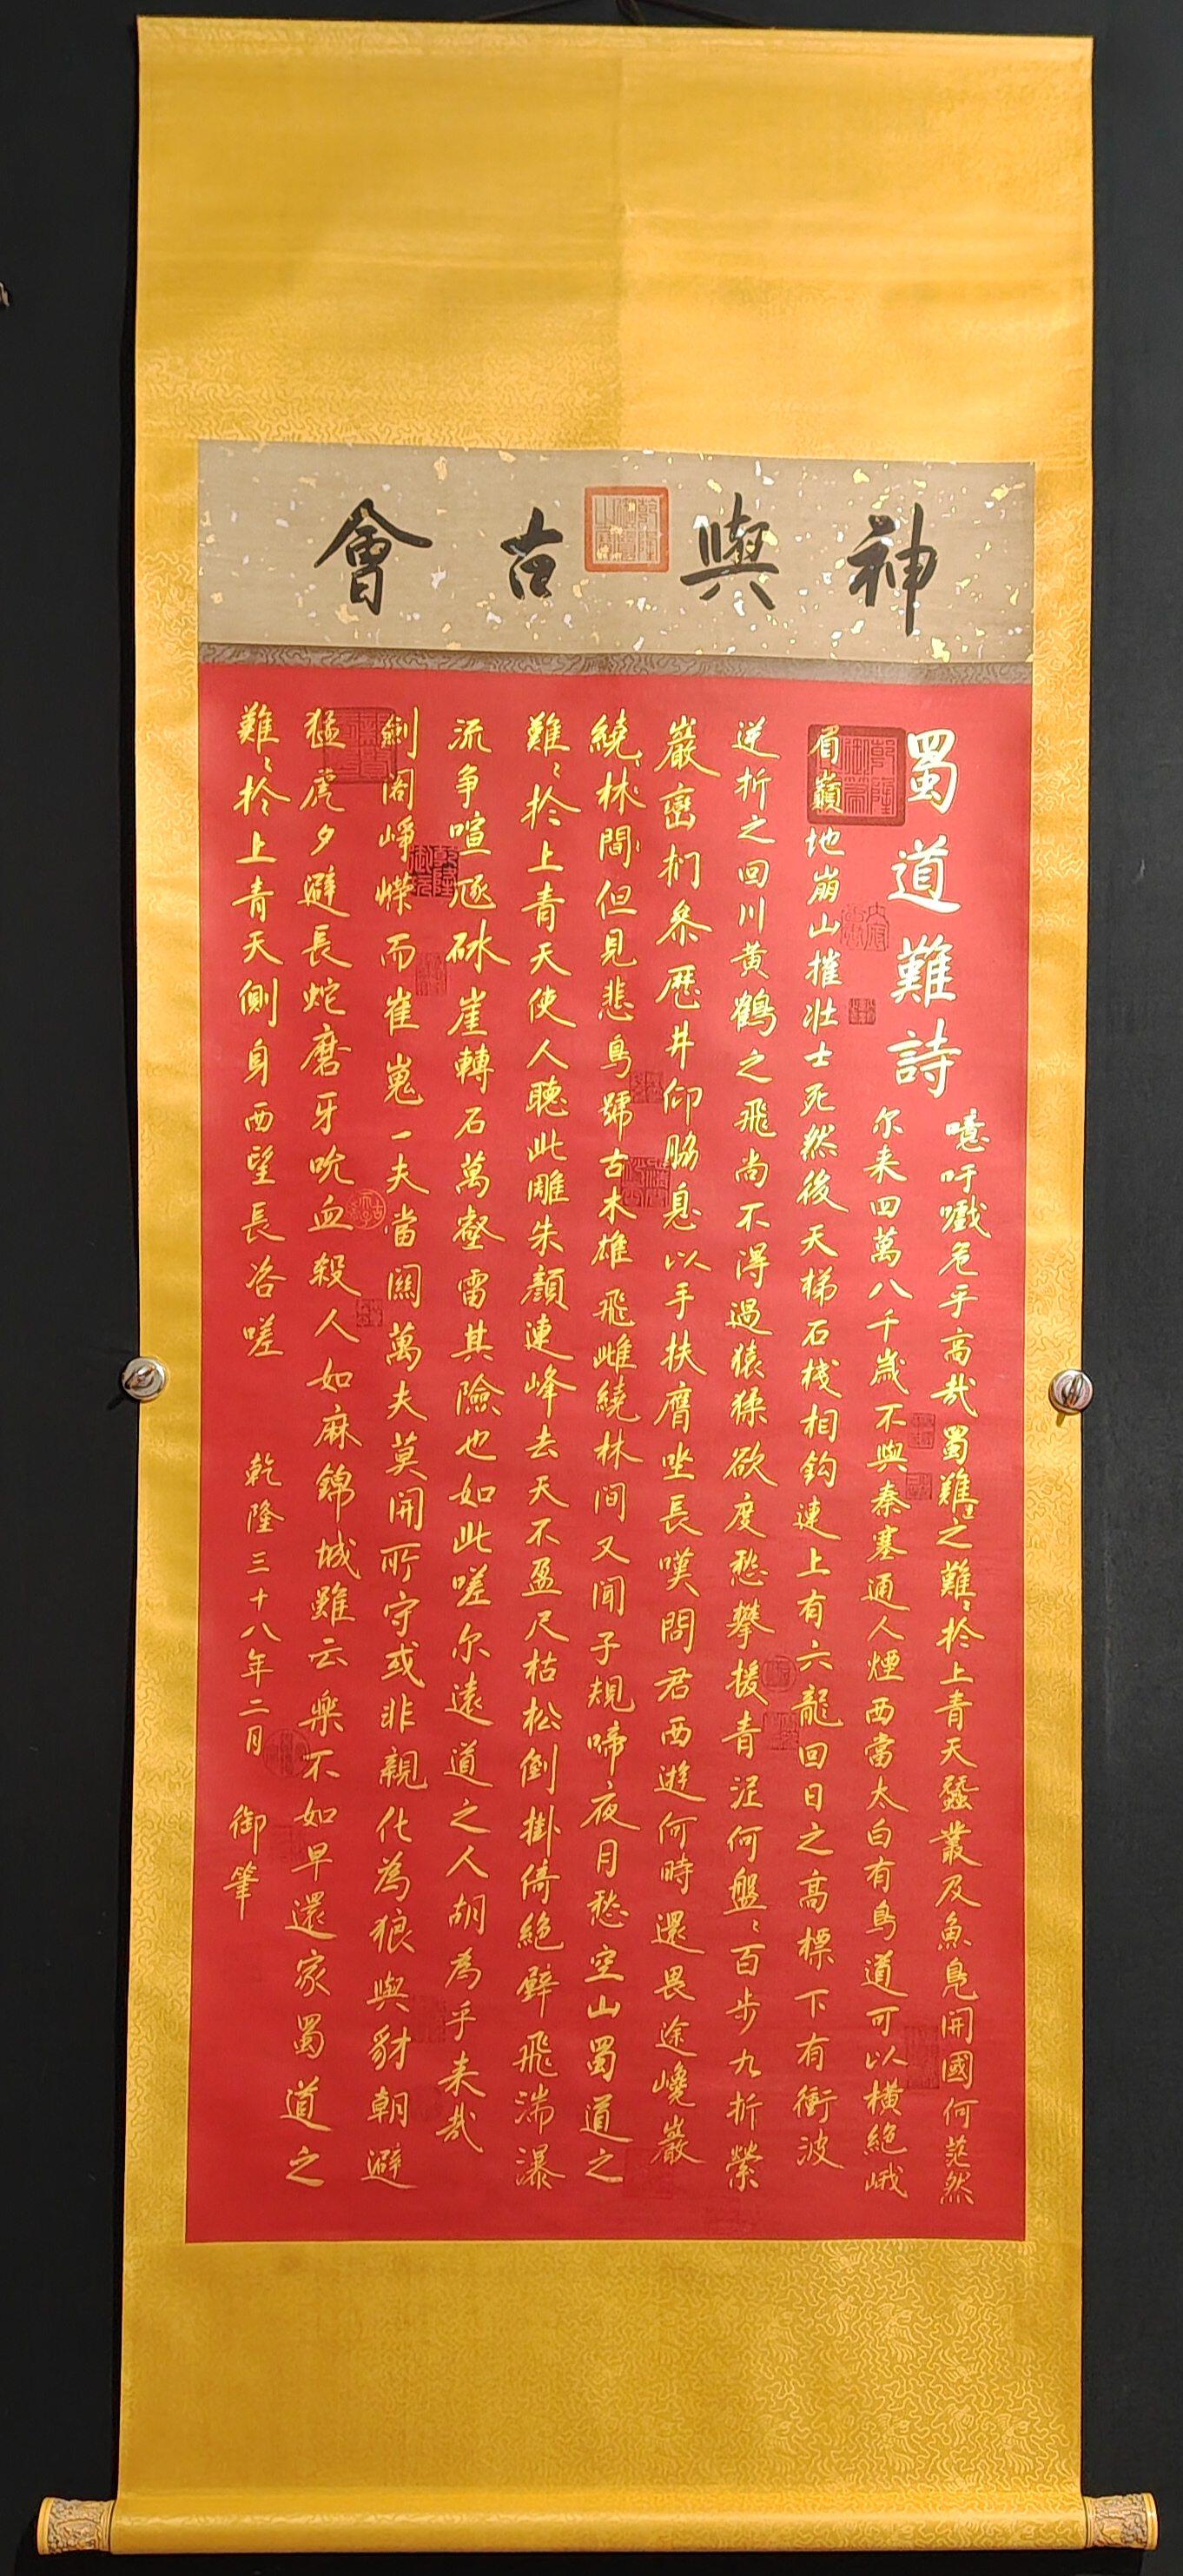 神與古會
乾隆御覽之寶
蜀道難詩
噫吁嚱危乎高哉蜀難之難〻於上青天蠶叢及魚鳧開國何茫然
尔来四萬八千歲不與秦塞通人煙西當太白有鳥道可以橫絕峨
眉巔地崩山摧壯士死然後天梯石棧相鈎連上有六龍回日之高標下有衝波
逆折之回川黃鶴之飛尚不得過猿猱欲度愁攀援青泥何盤〻百步九折縈
巖巒捫參歷井仰脇息以手扶膺坐長嘆問君西遊何時還畏途巉巖
繞林間但見悲鳥號古木雄飛雌繞林间又聞子規啼夜月愁空山蜀道之
難〻於上青天使人聽此雕朱顏連峰去天不盈尺枯松倒掛倚絕壁飛湍瀑
流争喧豗砯崖轉石萬壑雷其險也如此嗟尔遠道之人胡為乎来哉
劍阁崢嶸而崔嵬一夫當關萬夫莫開所守或非親化為狼與豺朝避
猛虎夕避長蛇磨牙吮血殺人如麻錦城雖云樂不如早還家蜀道之
難〻於上青天側身西望長咨嗟
乾隆三十八年二月
御筆